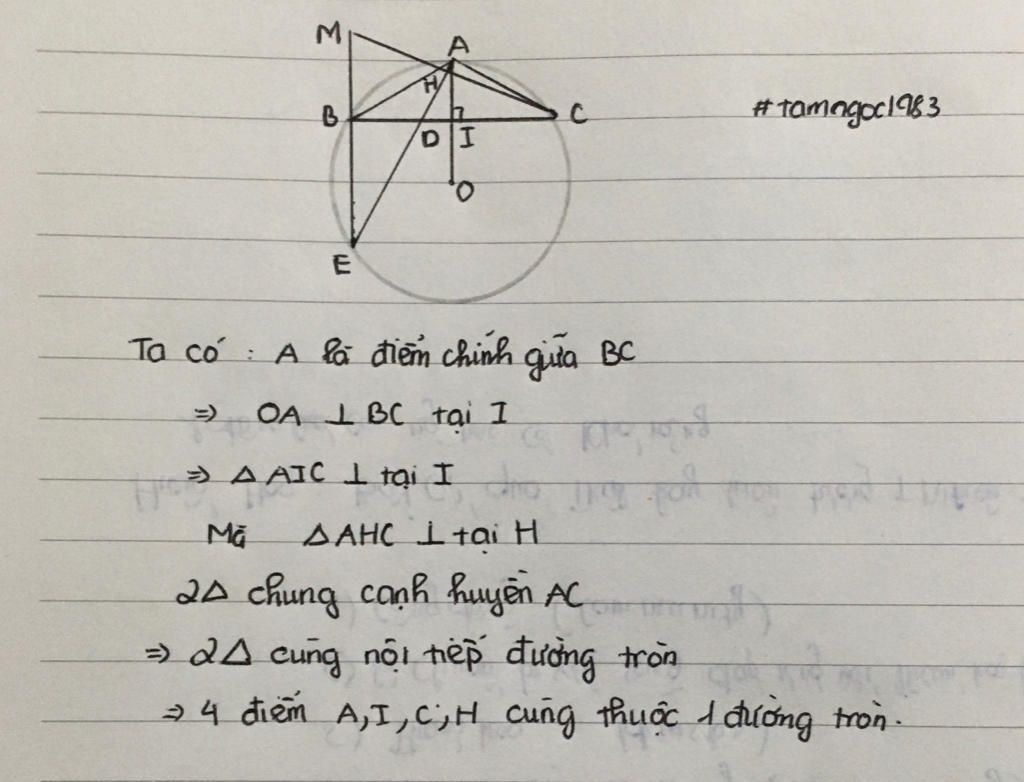 M
A
H
B
C
#tamngoc1983
D I
O
E
Ta có : A là điểm chính giữa BC
⇒ OA ⊥ BC tại I
⇒ △AIC ⊥ tại I
Mà △AHC ⊥ tại H
2△ chung cạnh huyền AC
⇒ 2△ cùng nội tiếp đường tròn
⇒ 4 điểm A, I, C, H cùng thuộc 1 đường tròn.